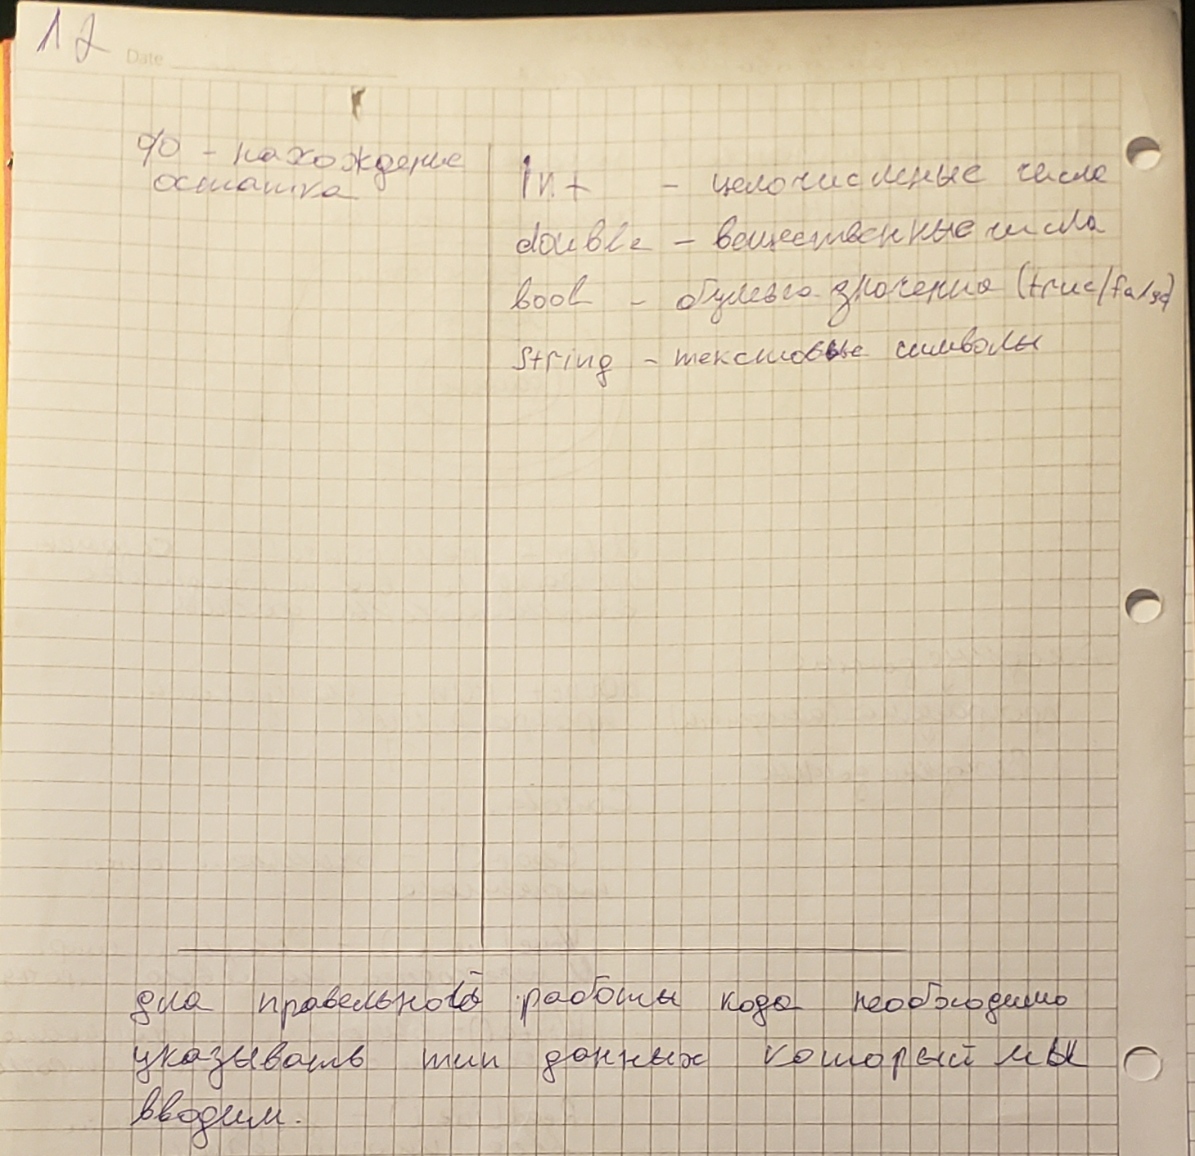 17
Date
% - нахождение
остатка
Int - целочисленные числа
double - вещественные числа
bool - булево значение (true/false)
String - текстовые символы
для правельной работы кода необходимо
указывать тип данных который мы
вводим.